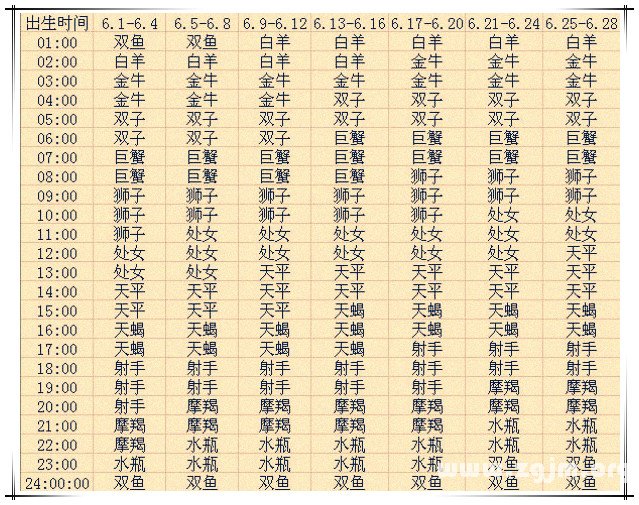 出生时间 6.1-6.4 6.5-6.8 6.9-6.12 6.13-6.16 6.17-6.20 6.21-6.24 6.25-6.28
01:00 双鱼 双鱼 白羊 白羊 白羊 白羊 白羊
02:00 白羊 白羊 白羊 白羊 金牛 金牛 金牛
03:00 金牛 金牛 金牛 金牛 金牛 金牛 金牛
04:00 金牛 金牛 金牛 双子 双子 双子 双子
05:00 双子 双子 双子 双子 双子 双子 双子
06:00 双子 双子 双子 巨蟹 巨蟹 巨蟹 巨蟹
07:00 巨蟹 巨蟹 巨蟹 巨蟹 巨蟹 巨蟹 巨蟹
08:00 巨蟹 巨蟹 巨蟹 巨蟹 狮子 狮子 狮子
09:00 狮子 狮子 狮子 狮子 狮子 狮子 狮子
10:00 狮子 狮子 狮子 狮子 狮子 处女 处女
11:00 狮子 处女 处女 处女 处女 处女 处女
12:00 处女 处女 处女 处女 处女 处女 天平
13:00 处女 处女 天平 天平 天平 天平 天平
14:00 天平 天平 天平 天平 天平 天平 天平
15:00 天平 天平 天平 天蝎 天蝎 天蝎 天蝎
16:00 天蝎 天蝎 天蝎 天蝎 天蝎 天蝎 天蝎
17:00 天蝎 天蝎 天蝎 天蝎 射手 射手 射手
18:00 射手 射手 射手 射手 射手 射手 射手
19:00 射手 射手 射手 射手 射手 摩羯 摩羯
20:00 射手 摩羯 摩羯 摩羯 摩羯 摩羯 摩羯
21:00 摩羯 摩羯 摩羯 摩羯 摩羯 水瓶 水瓶
22:00 摩羯 水瓶 水瓶 水瓶 水瓶 水瓶 水瓶
23:00 水瓶 水瓶 水瓶 水瓶 水瓶 双鱼 双鱼
24:00:00 双鱼 双鱼 双鱼 双鱼 双鱼 双鱼 双鱼